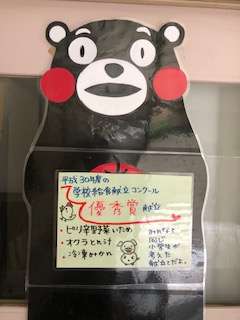 平成30年度の
学校給食献立コンクール
優秀賞献立
・ピリ辛野菜いため
・オクラとんじる
・冷凍みかん
みんなと
同じ
小学生が
考えた
献立だよ。